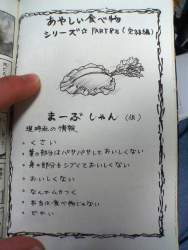 あやしい食べ物
シリーズ☆ PART
まーぶ しゃん (仮)
現時点の情報
・くさい
・葉の部分はパサパサしておいしくない
・身の部分もシブくておいしくない
・おいしくない
・なんかムカつく
・おおよそ食べ物じゃない
・でかい